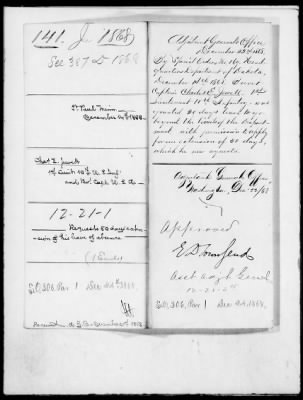 141. J 1868
See 387 D 1868
St Paul Minn
December 1868
Chas E. Jewett
1st Lieut 10th U.S. Inf.
and Bvt Capt U.S.A.
12-21-1
Requests 30 days exten-
sion of his leave of absence
(1 Enclo)
S.O. 306. Par 1 Dec 24th 1868.
Received A.G.O. December 1868
Adjutant General's Office
December 22nd 1868.
By Special Orders No Head-
quarters Department of Dakota,
December 1868, Brevet
Captain Charles E. Jewett, 1st
Lieutenant 10th Infantry, was
granted 30 days leave to go
beyond the limits of the Depart-
ment with permission to apply
for an extension of 30 days,
which he now requests.
Adjutant General's Office
Washington, Dec 22/68
Approved
E D Townsend
Asst Adjt Genl
12-21-
S.O. 306. Par 1 Dec 24, 1868.